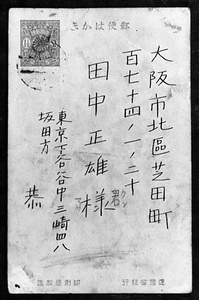 郵便はかき
大阪市北區芝田町
百七十四ノ一ノ二十
田中正雄様
東京下谷谷中三崎四八
坂田方
恭